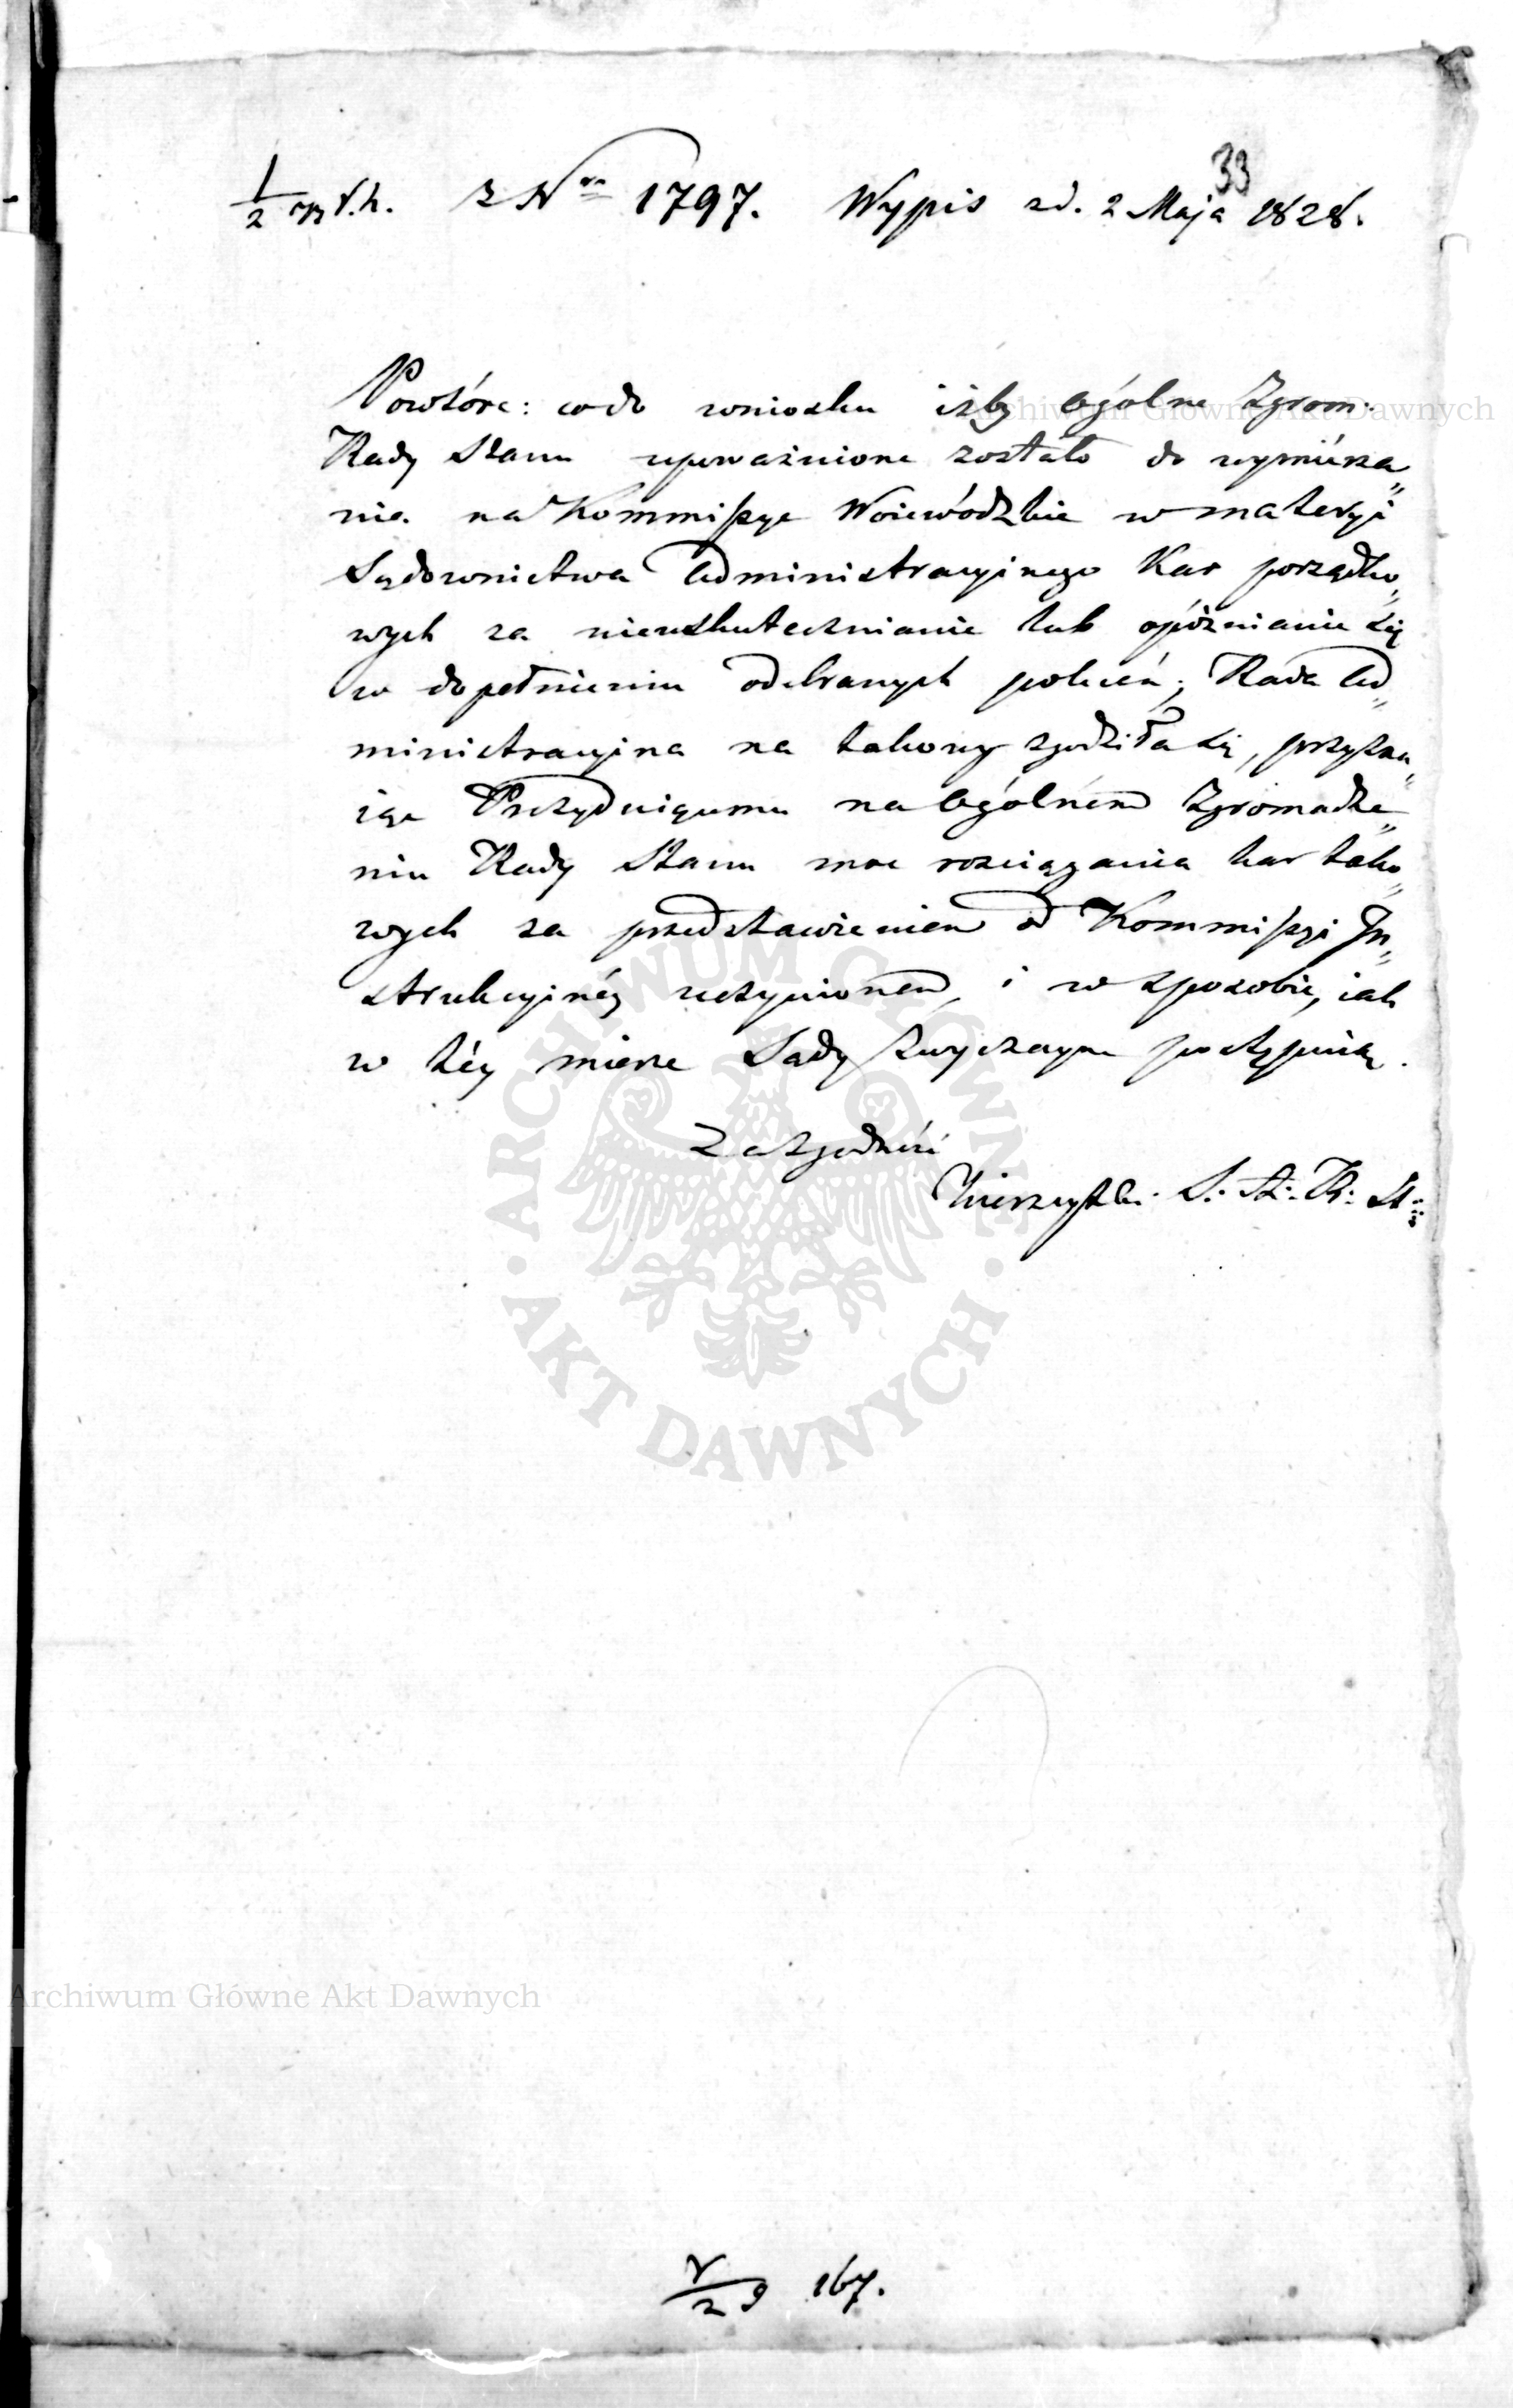 33
1/2 V. h. z Nra 1797. Wypis z d. 2 Maja 1828.
Powtóre: co do wniosku iżby Ogólne Zgrom:
Archiwum Główne Akt Dawnych
Rady Stanu upoważnione zostało do wymierza„
nia na Kommißye Woiewódzkie w materyi
Sądownictwa Administracyinego Kar porządko„
wych za nieuskutecznianie lub opóźnianie się
w dopełnieniu odebranych poleceń; Rada Ad„
ministracyina na takowy zgodziła się, przyzna„
iąc Prezyduiącemu na Ogólném Zgromadze„
niu Rady Stanu moc rozciągania kar tako„
wych za przedstawieniem od Kommißyi In„
strukcyinéy uczynionem, i w sposobie, iak
w téy mierze Sądy zwyczayne postępuią.
Za zgodność
S: St: R: St:
ARCHIWUM GŁÓWNE
· AKT DAWNYCH ·
Archiwum Główne Akt Dawnych
V/2 9 167.